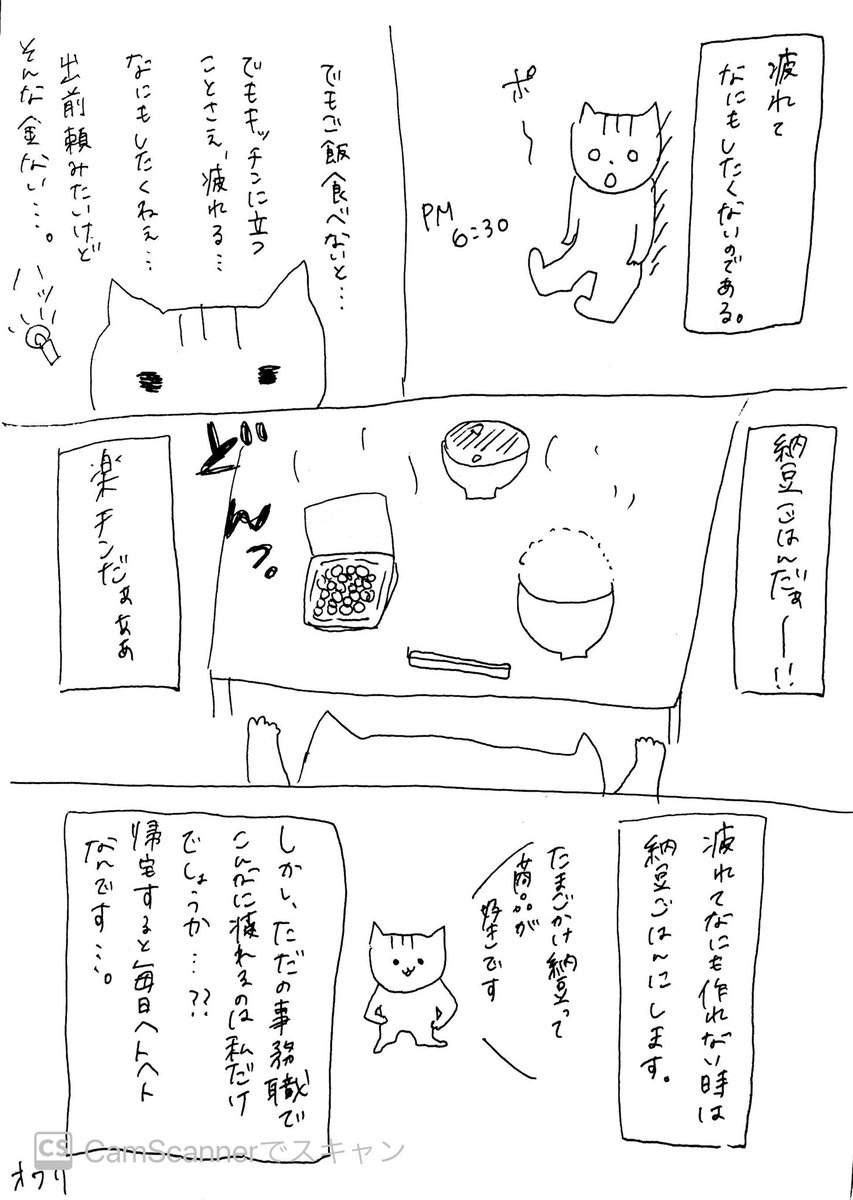 疲れて
なにもしたくないのである。
ポ〜
PM
6:30
でもご飯食べないと…
でもキッチンに立つ
ことさえ、疲れる…
なにもしたくねぇ…
出前頼みたいけど
そんな金ない…。
ハッ
納豆ごはんだぁー!!
どんっ。
楽チンだぁぁぁ
疲れてなにも作れない時は
納豆ごはんにします。
たまごかけ納豆って
商品が
好きです
しかし、ただの事務職で
こんなに疲れるのは私だけ
でしょうか…??
帰宅すると毎日ヘトヘト
なんです…。
オワリ
CS CamScannerでスキャン